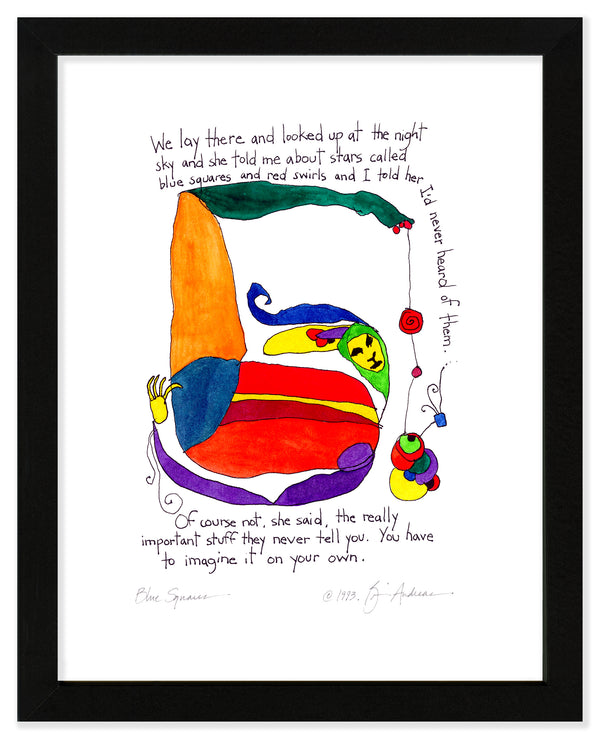 We lay there and looked up at the night
sky and she told me about stars called
blue squares and red swirls and I told her
I'd never heard of them.
Of course not, she said, the really
important stuff they never tell you. You have
to imagine it on your own.
Blue Squares
© 1993. Andreas